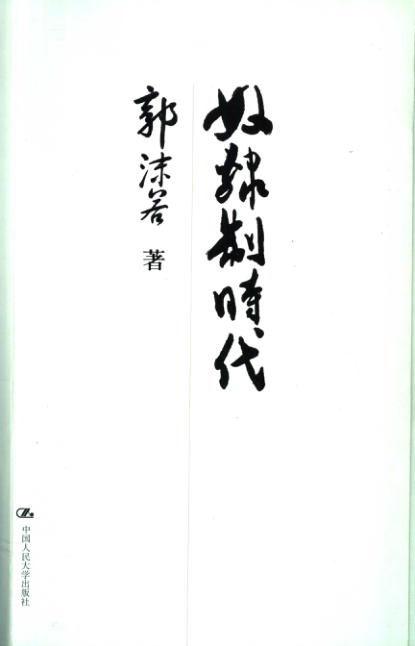 奴隸制時代
郭沫若 著
中国人民大学出版社